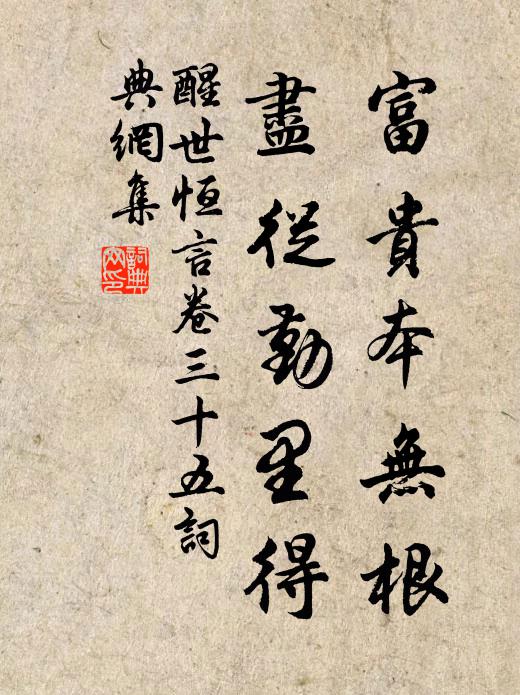 富貴本無根
盡從勤里得
醒世恒言卷三十五詞
典網集
詞典